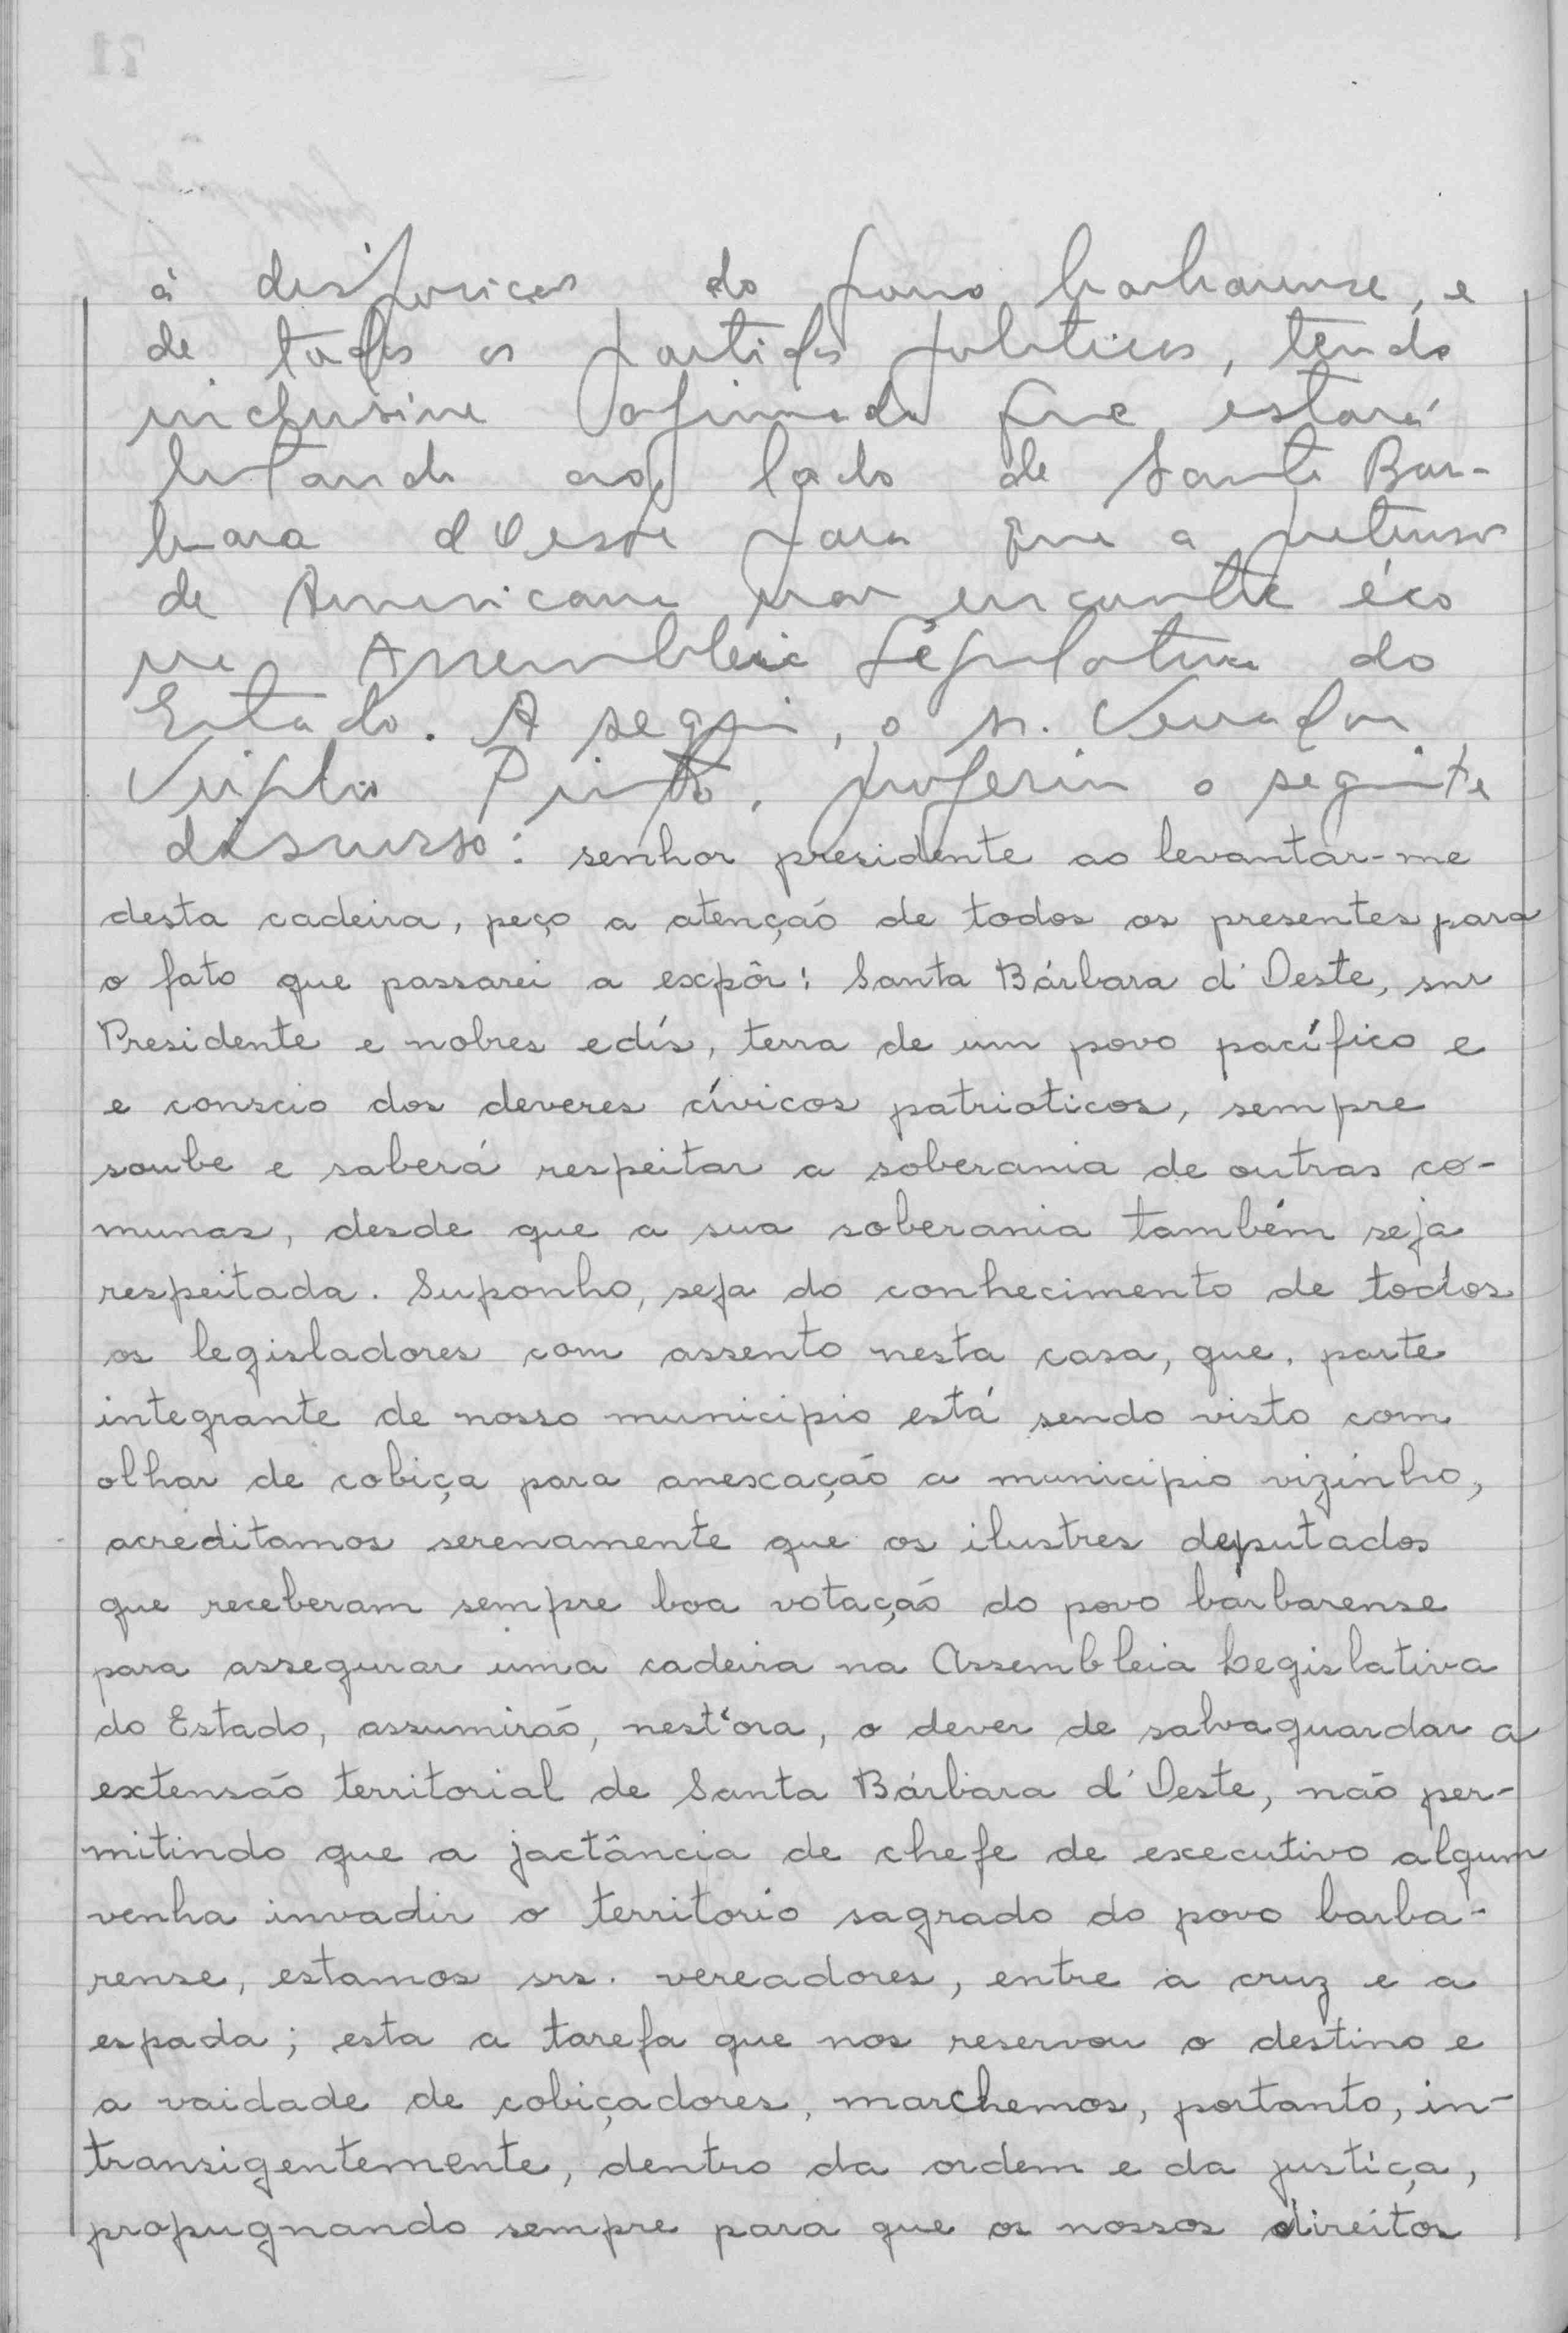 à disposição do povo barbarense, e
de todos os partidos politicos, tendo
inclusive afirmado que estará
lutando ao lado de Santa Bar-
bara d'Oeste para que a pretensão
de Americana não encontre éco
na Assembleia Legislativa do
Estado. A seguir, o sr. Vereador
Pinto, proferiu o seguinte
discurso: senhor presidente ao levantar-me
desta cadeira, peço a atenção de todos os presentes para
o fato que passarei a expôr: Santa Bárbara d'Oeste, snr
Presidente e nobres edís, terra de um povo pacífico e
e conscio dos deveres cívicos patrioticos, sempre
soube e saberá respeitar a soberania de outras co-
munas, desde que a sua soberania também seja
respeitada. Suponho, seja do conhecimento de todos
os legisladores com assento nesta casa, que, parte
integrante de nosso municipio está sendo visto com
olhar de cobiça para anexação a municipio vizinho,
acreditamos serenamente que os ilustres deputados
que receberam sempre boa votação do povo barbarense
para assegurar uma cadeira na Assembleia Legislativa
do Estado, assumirão, nest'ora, o dever de salvaguardar a
extensão territorial de Santa Bárbara d'Oeste, não per-
mitindo que a jactância de chefe de executivo algum
venha invadir o territorio sagrado do povo barba-
rense, estamos srs. vereadores, entre a cruz e a
espada; esta a tarefa que nos reservou o destino e
a vaidade de cobiçadores, marchemos, portanto, in-
transigentemente, dentro da ordem e da justiça,
propugnando sempre para que os nossos direitos